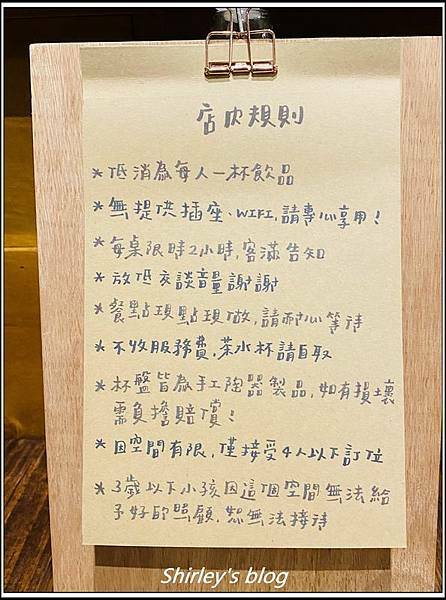 店內規則
* 低消為每人一杯飲品
* 無提供插座、WIFI,請專心享用!
* 每桌限時2小時,客滿告知
* 放低交談音量謝謝
* 餐點現點現做,請耐心等待
* 不收服務費,茶水杯請自取
* 杯盤皆為手工陶器製品,如有損壞
需負擔賠償!
* 因空間有限,僅接受4人以下訂位
* 3歲以下小孩因這個空間無法給
予好的照顧,恕無法接待
Shirley's blog